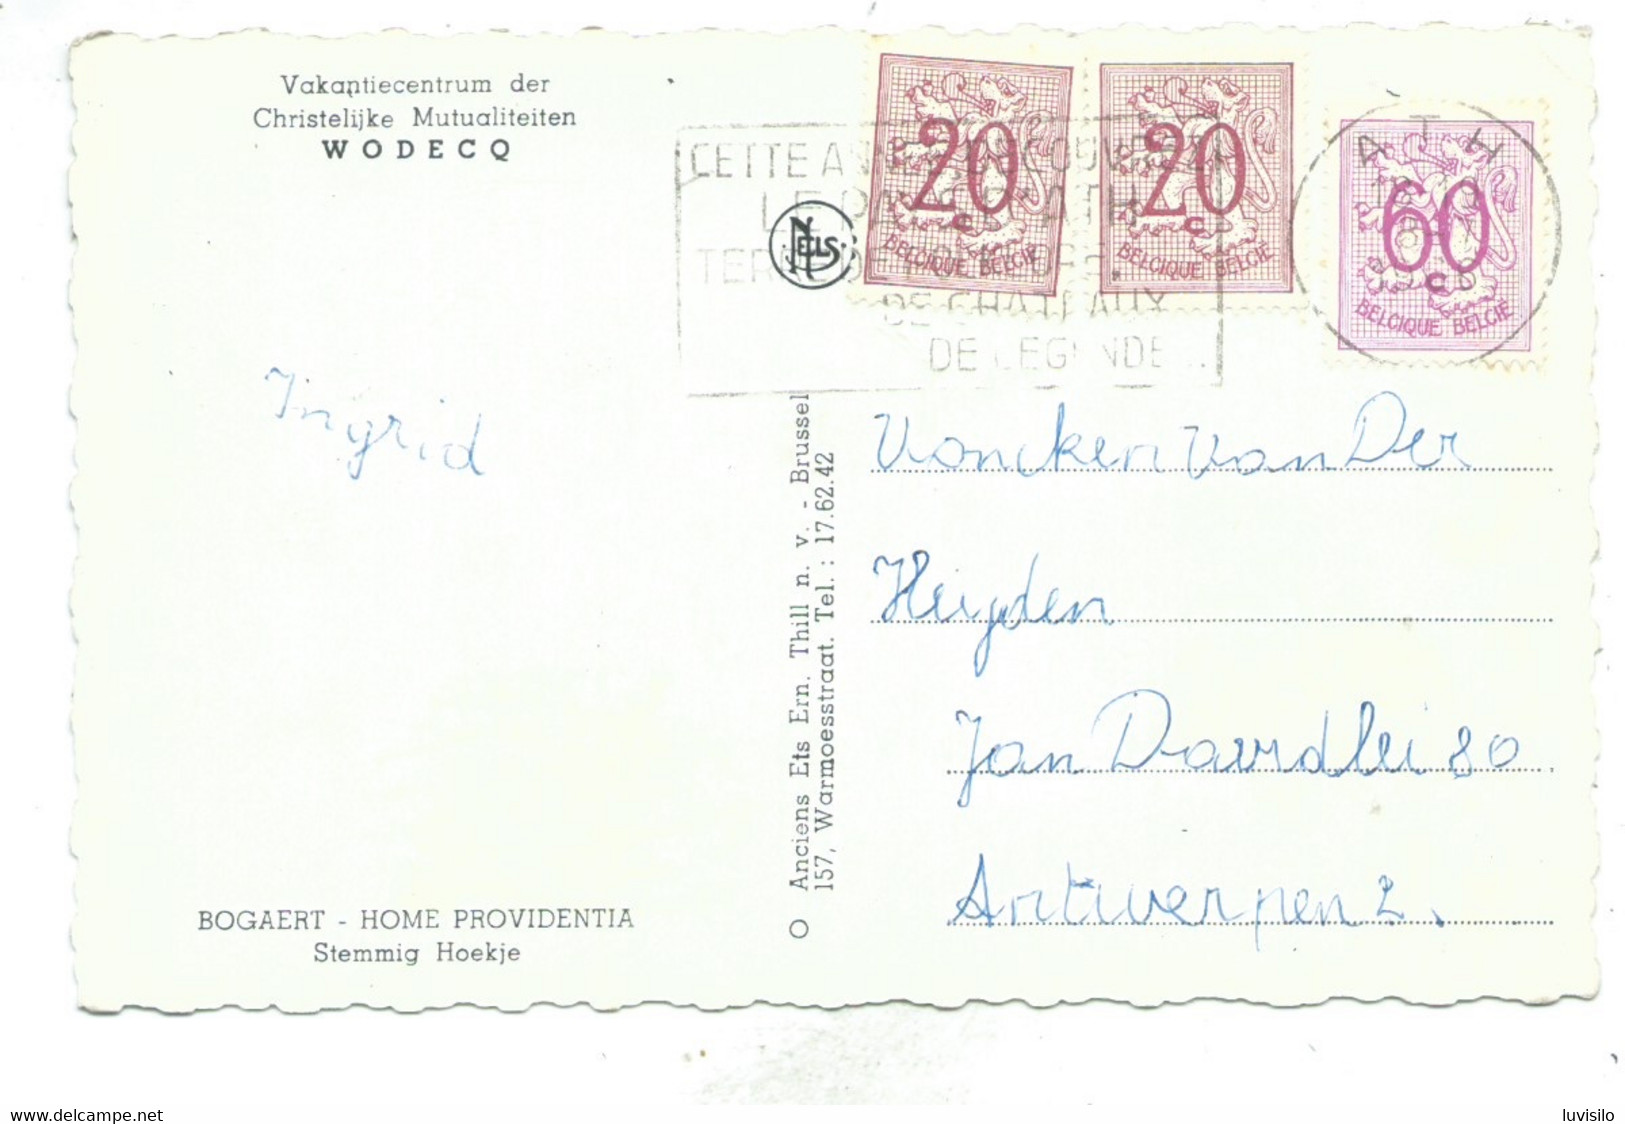 Vakantiecentrum der
Christelijke Mutualiteiten
WODECQ
20 c
BELGIQUE BELGIË
20 c
BELGIQUE BELGIË
60 c
BELGIQUE BELGIË
ATH
CETTE
LE PAYS D'ATH
TERRE DE
DE CHATEAUX
DE LEGENDE...
NELS
Ingrid
Voncken Van Der
Heyden
Jan Davidlei 80
Antwerpen 2.
Anciens Ets Ern. Thill n. v. - Brussel
157, Warmoesstraat. Tel. : 17.62.42
BOGAERT - HOME PROVIDENTIA
Stemmig Hoekje
delcampe.net
luvisilo